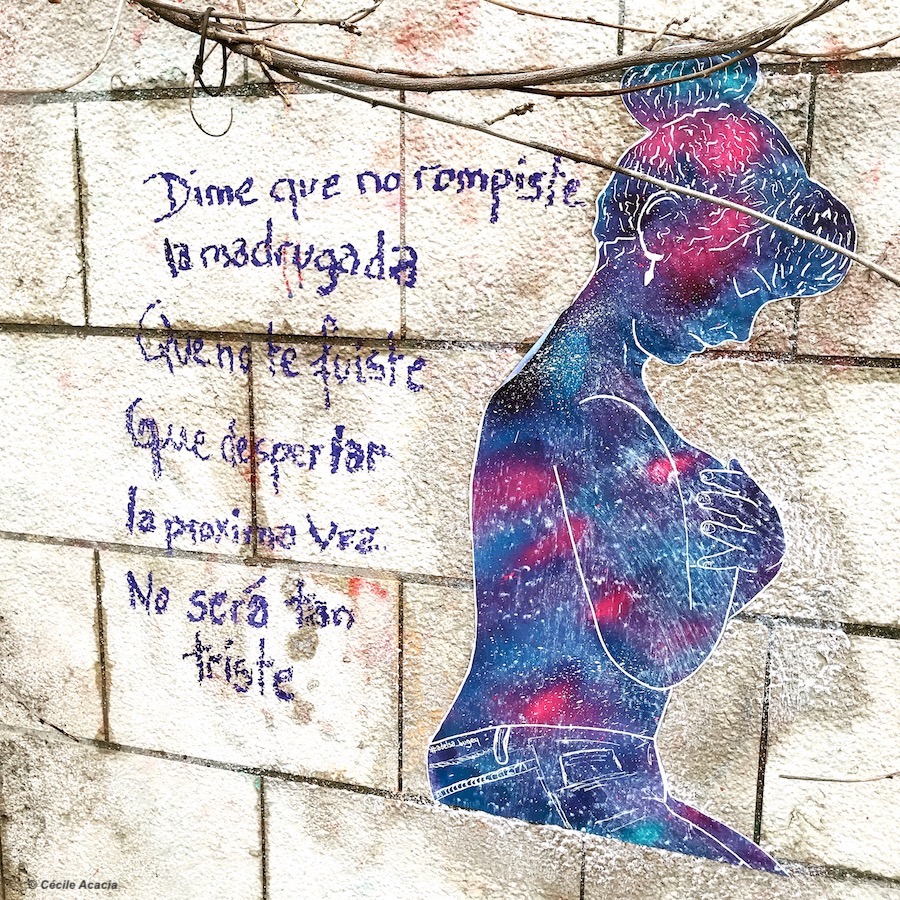 Dime que no rompiste
la madrugada
Que no te fuiste
Que despertar
la proxima vez
No será tan
triste
© Cécile Acacia